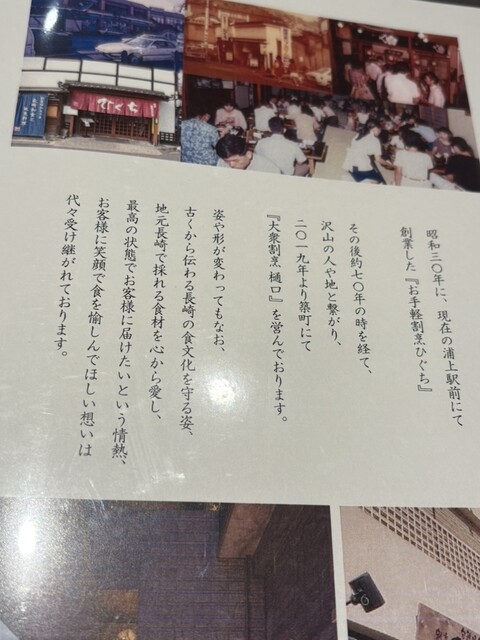 ひぐち
昭和三〇年に、現在の浦上駅前にて
創業した『お手軽割烹ひぐち』
その後約七〇年の時を経て、
沢山の人や地と繋がり、
二〇一九年より築町にて
『大衆割烹 樋口』を営んでおります。
姿や形が変わってもなお、
古くから伝わる長崎の食文化を守る姿、
地元長崎で採れる食材を心から愛し、
最高の状態でお客様に届けたいという情熱、
お客様に笑顔で食を愉しんでほしい想いは
代々受け継がれております。